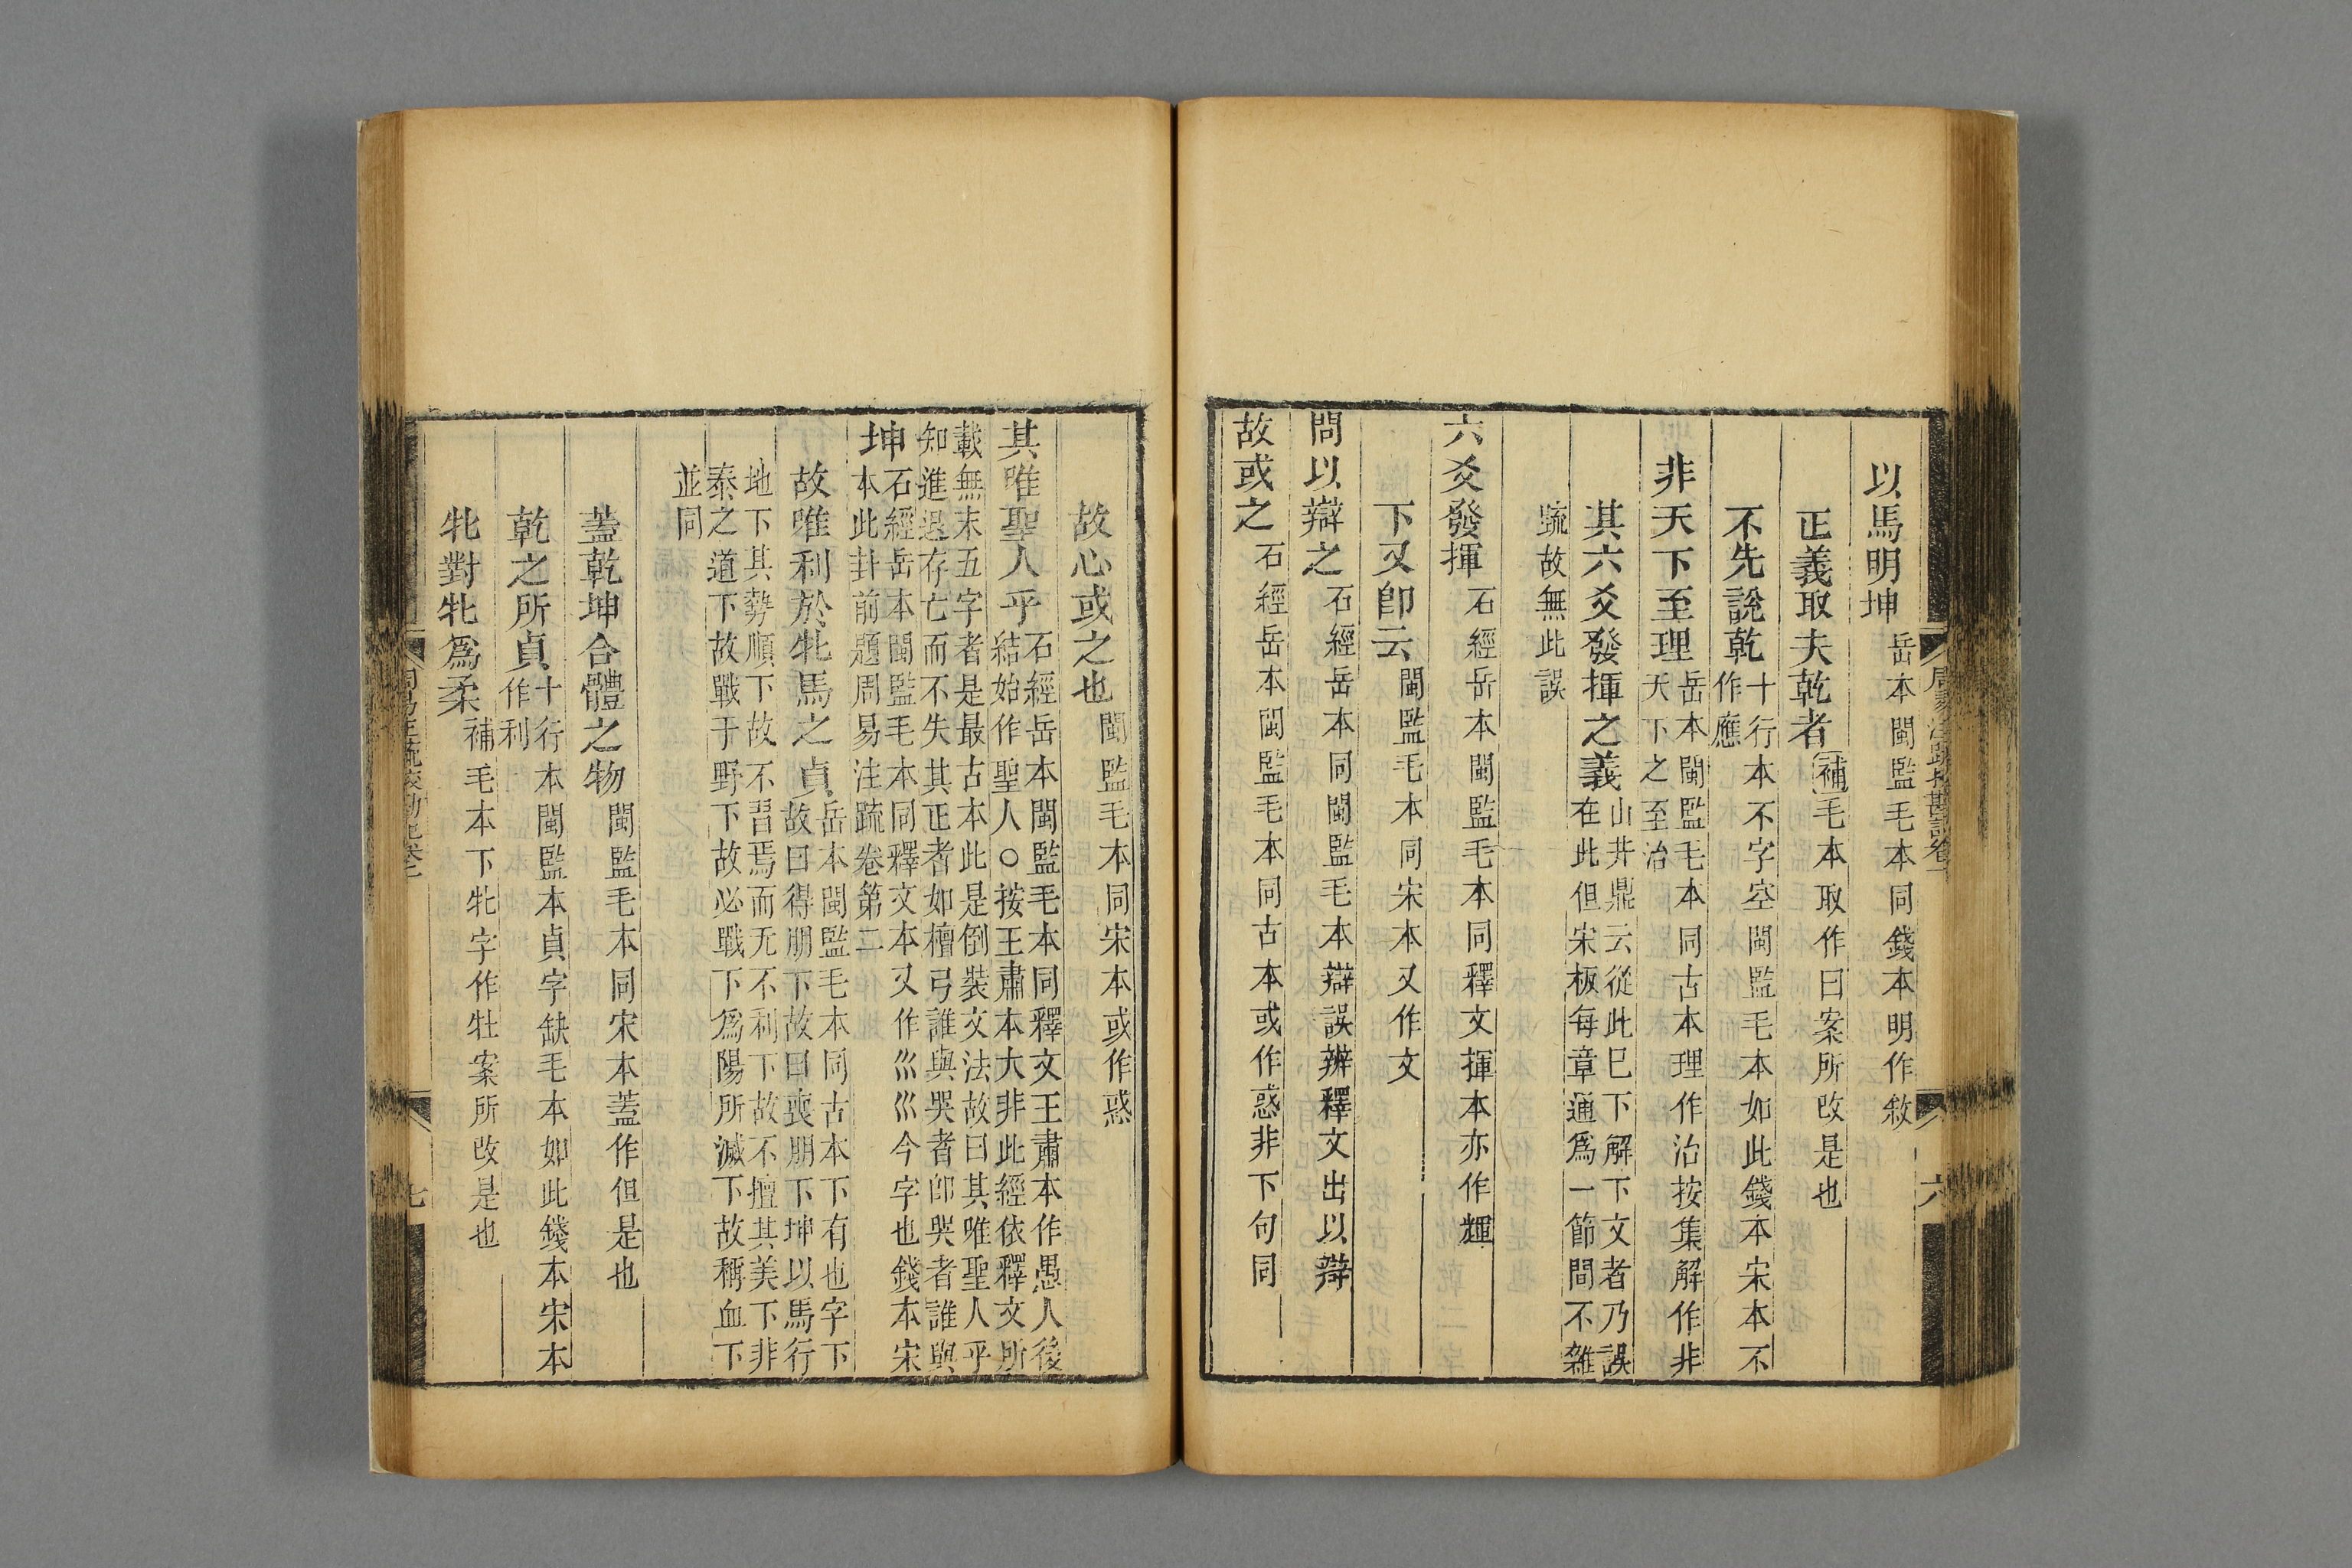 以馬明坤岳本閩監毛本同錢本明作敘
正義取夫乾者補毛本取作曰案所改是也
不先說乾十行本不字空閩監毛本如此錢本宋本不作應
非天下至理岳本閩監毛本同古本理作治按集解作非天下之至治
其六爻發揮之義山井鼎云從此巳下解下文者乃誤在此但宋板每章通爲一節間不雜
疏故無此誤
六爻發揮石經岳本閩監毛本同釋文揮本亦作輝
下又卽云閩監毛本同宋本又作文
問以辯之石經岳本同閩監毛本辯誤辨釋文出以辯
故或之石經岳本閩監毛本同古本或作惑非下句同
故心或之也閩監毛本同宋本或作惑
其唯聖人乎石經岳本閩監毛本同釋文王肅本作愚人後結始作聖人○按王肅本大非此經依釋文所
載無末五字者是最古本此是倒裝文法故曰其唯聖人乎知進退存亡而不失其正者如檀弓誰與哭者卽哭者誰與
坤石經岳本閩監毛本同釋文本又作巛巛今字也錢本宋本此卦前題周易注疏卷第二
故唯利於牝馬之貞岳本閩監毛本同古本下有也字下故曰得朋下故曰喪朋下坤以馬行
地下其勢順下故不習焉而无不利下故不擅其美下非泰之道下故戰于野下故必戰下爲陽所滅下故稱血下
並同
蓋乾坤合體之物閩監毛本同宋本蓋作但是也
乾之所貞十行本閩監本貞字缺毛本如此錢本宋本作利
牝對牝爲柔補毛本下牝字作牡案所改是也
六
七